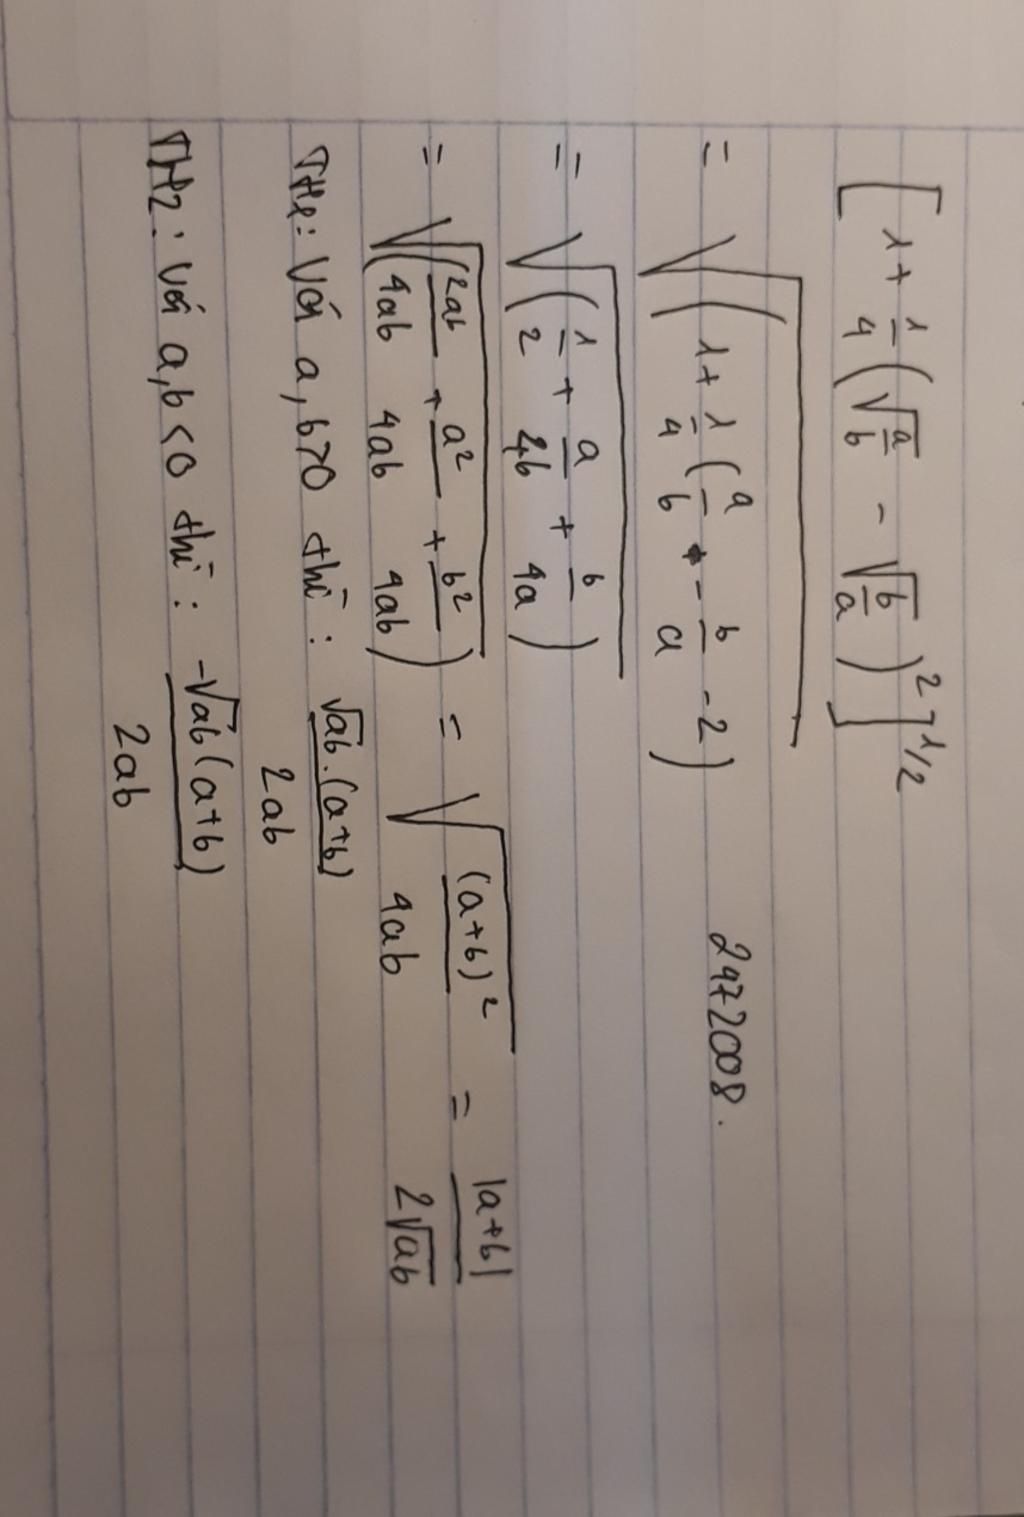 [1 + 1/4 (√(a/b) - √(b/a))²]^1/2
= √(1 + 1/4 (a/b - b/a - 2)) 2472008.
= √(1/2 + a/4b + b/4a)
= √(2ab/4ab + a²/4ab + b²/4ab) = √((a+b)²/4ab) = |a+b|/2√ab
TH1: Với a, b>0 thì: √ab.(a+b)/2ab
TH2: Với a,b<0 thì: -√ab(a+b)/2ab